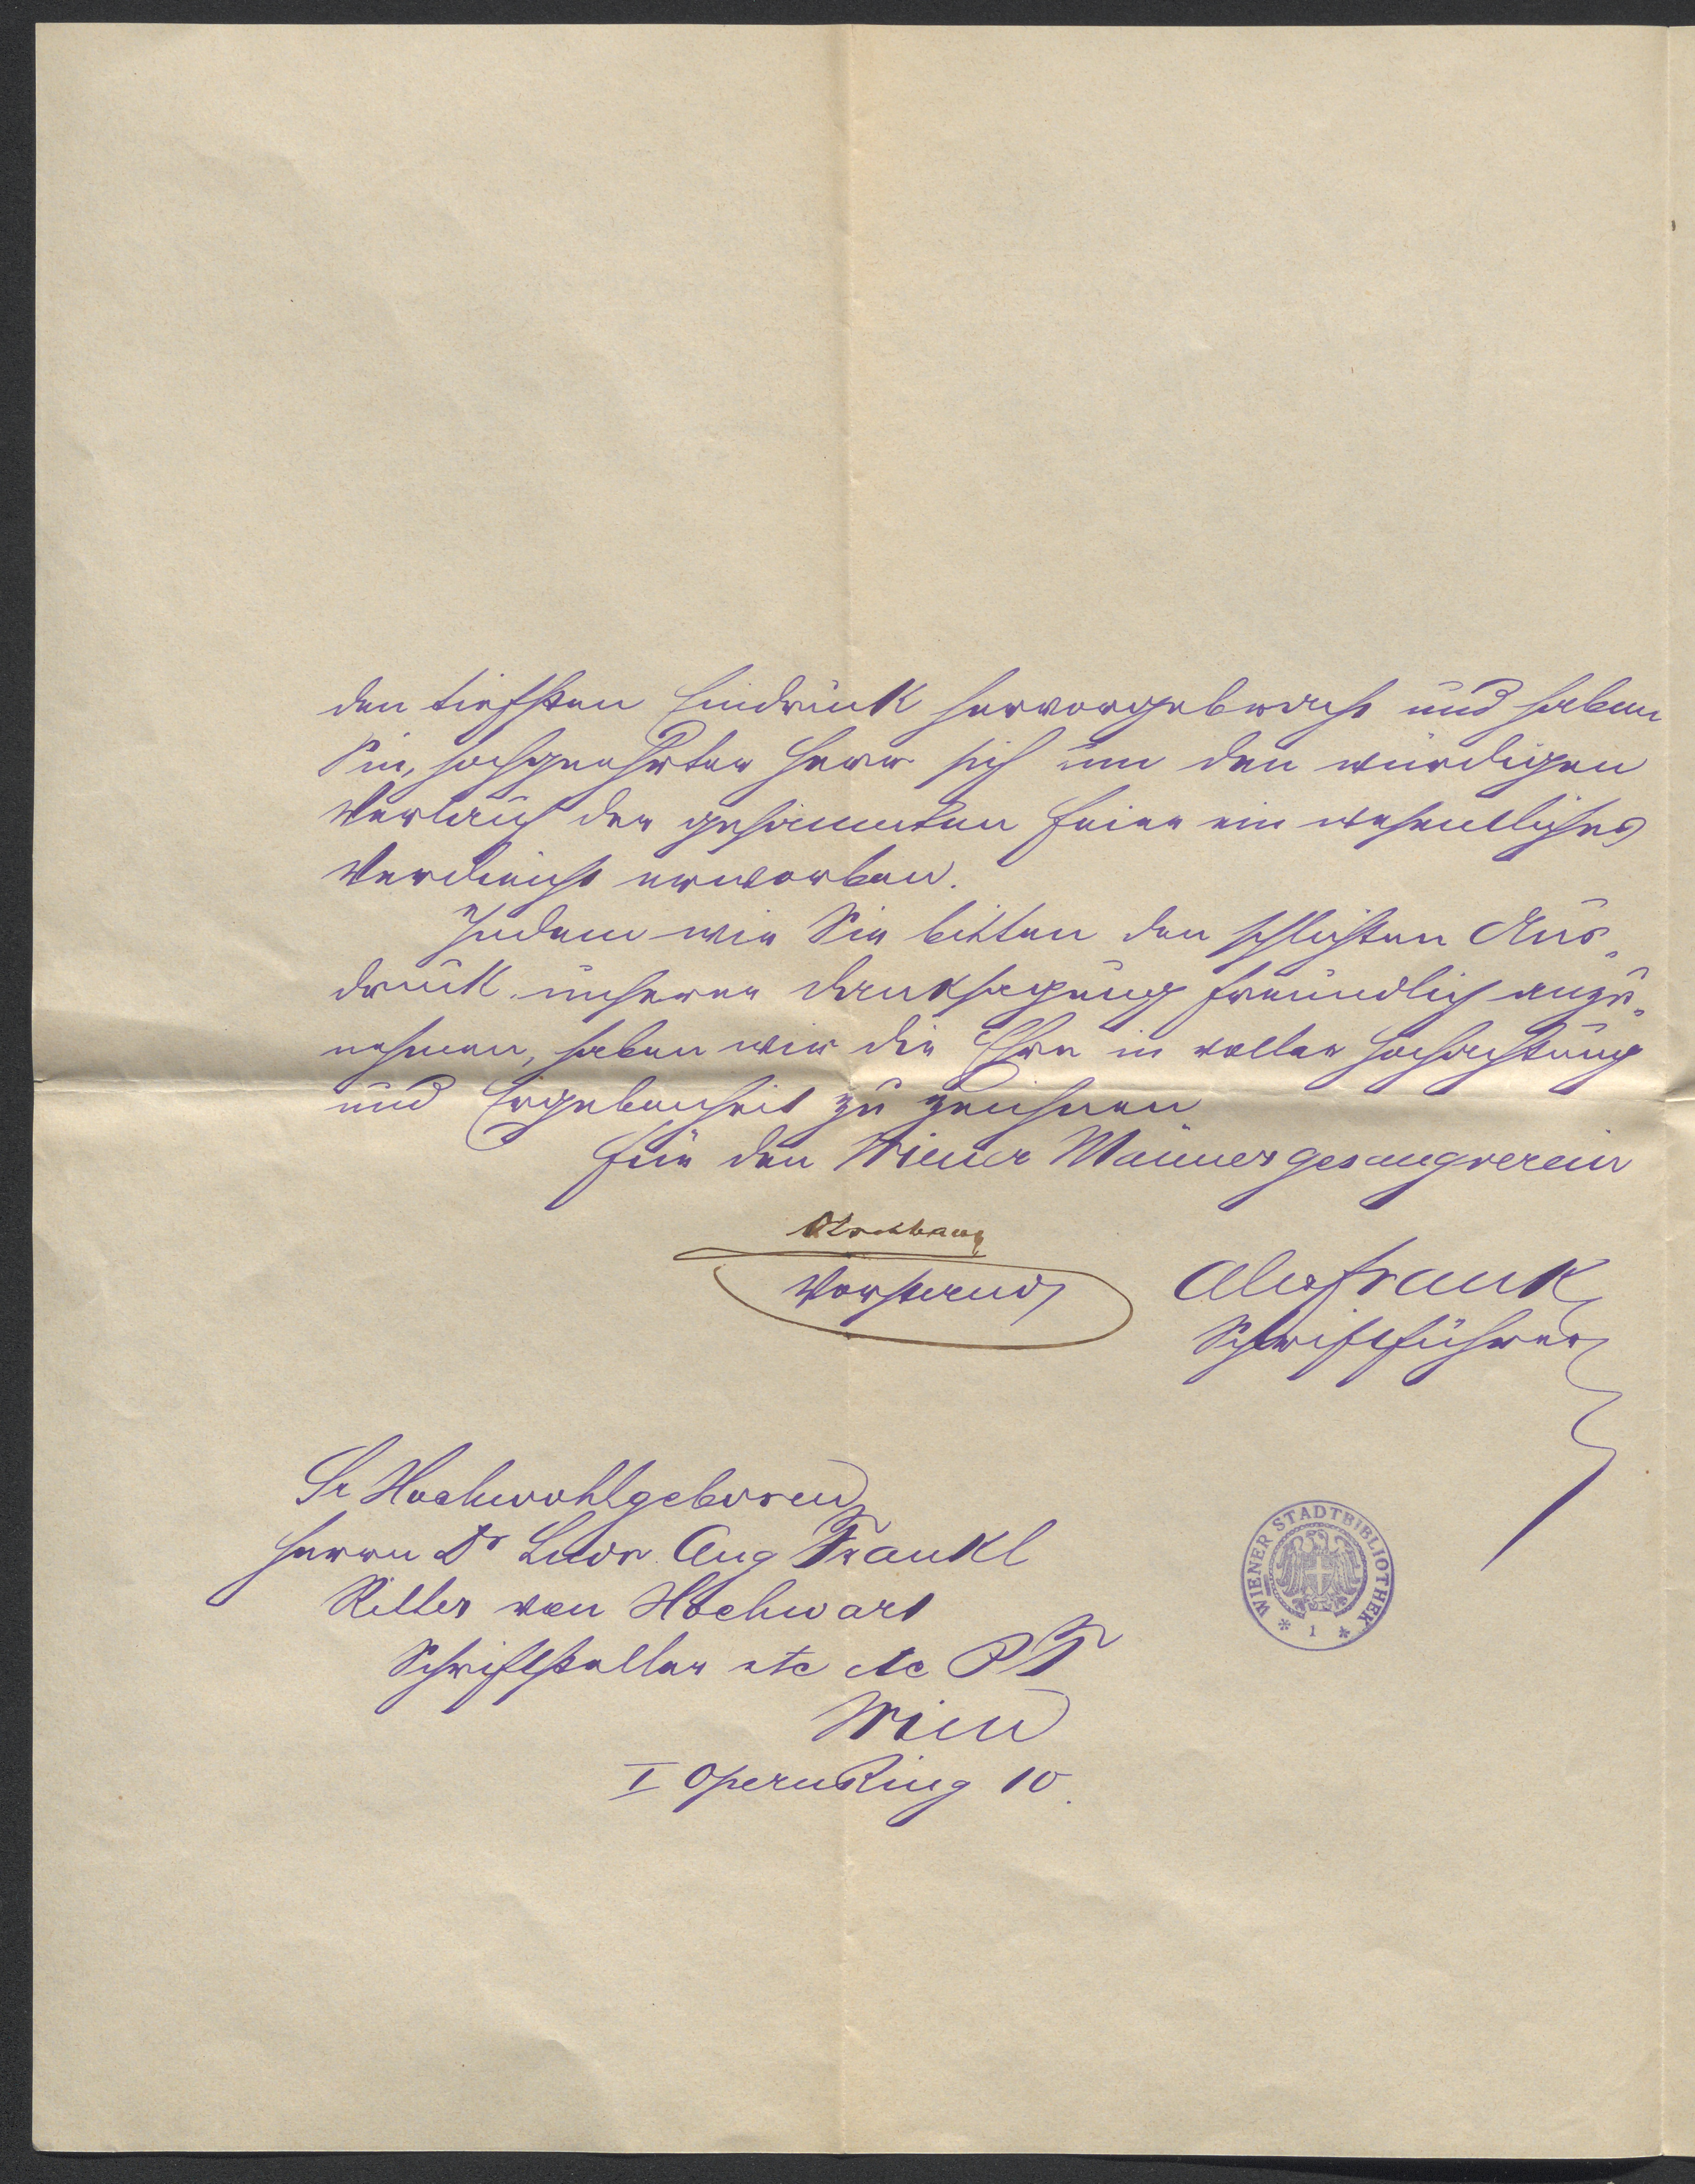 den tiefsten Eindruck hervorgebracht und haben
Sie, hochgeehrter Herr sich um den würdigen
Verlauf der gesammten Feier ein wesentliches
Verdienst erworben.
Indem wir Sie bitten den schlichten Aus„
druck unserer Danksagung freundlich anzu„
nehmen, haben wir die Ehre in voller Hochachtung
und Ergebenheit zu zeichnen
Für den Wiener Männergesangverein
Olschbaur
Vorstand
Alex Frank
Schriftführer
Sr Hochwohlgeboren
Herrn Dr Ludw Aug Frankl
Ritter von Hochwart
Schriftsteller etc etc PT
Wien
I OpernRing 10.
WIENER STADTBIBLIOTHEK
* 1 *